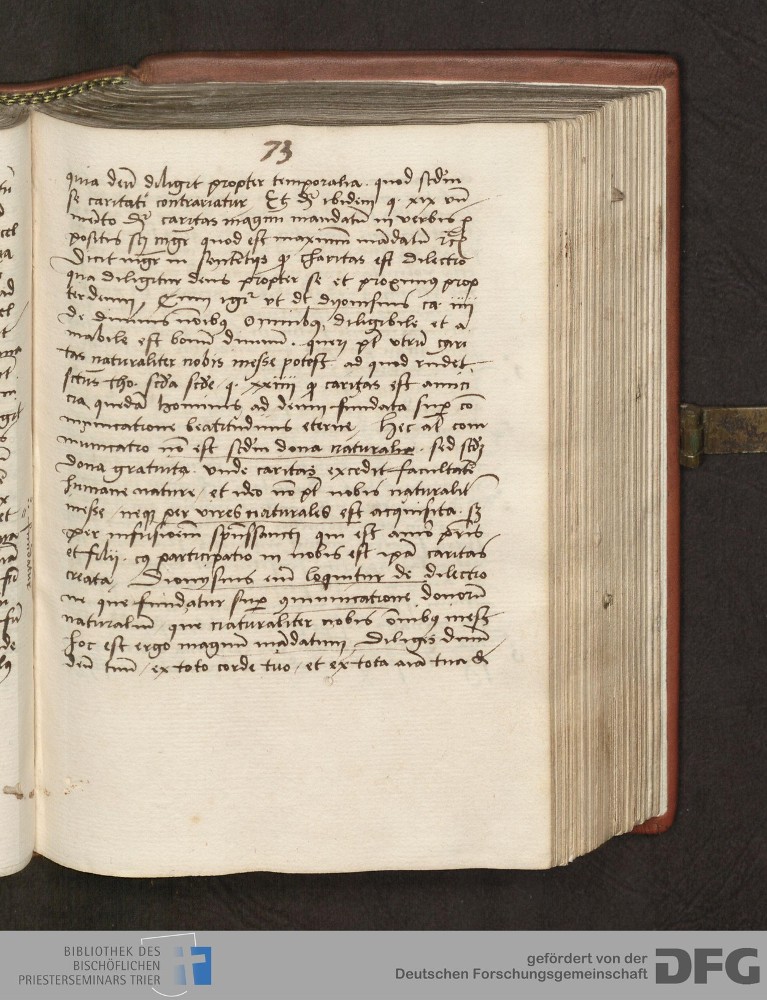 73
quia deū diligit propter temporalia. quod scd'm
se caritati contrariatur Et dr ibidem q. xix
mēto dr caritas magnū mandatū in verbis p
positis mgr quod est maximū mādatū
Dicit mgr in sententijs ꝙ charitas est dilectio
qua diligitur deus propter se et proximus prop
ter deum, Cum igr vt dt dyonisius ca. iiii
de diuinis nōibus Omnibus, diligibile et a
mabile est bonū diuinū. queri pt vtrū cari
tas naturaliter nobis inesse potest ad quod rn̄det
sctus tho. scd'a scd'e q. xxiiii ꝙ caritas est amici
cia quedā hominis ad deum fundata sup cō
municatione beatitudinis eterne. Hec at com
municatio nō est scd'm dona naturalia. sed scd'm
dona gratuita. vnde caritas excedit facultatē
humane nature, et ideo nō pt nobis naturalit
inesse, neque per vires naturales est acquisita. sꝫ
per infusionem spūssancti qui est amor p̄ris
et filij. cuꝰ participatio in nobis est ip̄a caritas
creata, Dionysius eni loquitur de dilectio
ne que fundatur sup cōmunicatione donorū
naturaliū, que naturaliter nobis oīnibus inest
hoc est ergo magnū mādatum, Diliges dnm
deū tuū, ex toto corde tuo, et ex tota aīa tua &
BIBLIOTHEK DES
BISCHÖFLICHEN
PRIESTERSEMINARS TRIER
gefördert von der
Deutschen Forschungsgemeinschaft
DFG